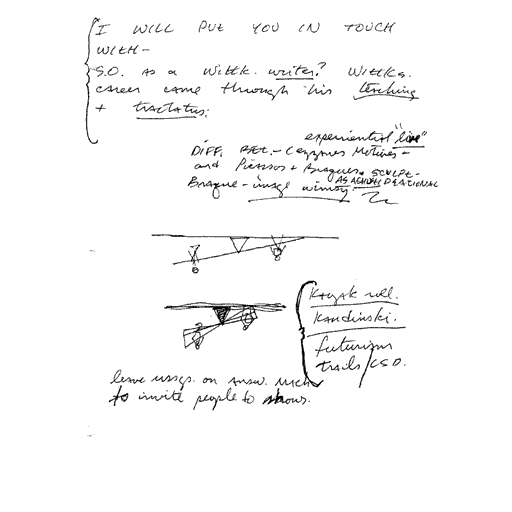 I WILL PUT YOU IN TOUCH
WITH-
S.O. as a Wittk. writer? Wittks.
career came through his teaching
+ tractatus.
experiential "line"
DIFF. BET. - Cezannes Motives -
and Picassos + Braques. SCULPT-
Braque - image
Kayak roll.
Kandinski.
futurism
trails/CSD.
leave msgs. on answ. mach
to invite people to shows.